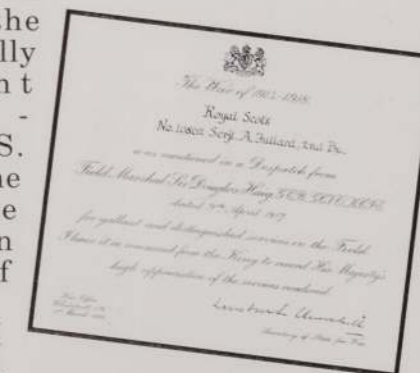 the
lly
n t
-
S.
ne
e
n
f
The War of 1914-1918.
Royal Scots
Serjt. A. Fullard, 2nd Bn.
was mentioned in a Despatch from
Field Marshal Sir Douglas Haig G.C.B. G.C.V.O. K.C.I.E.
dated 9th April 1917
for gallant and distinguished services in the Field.
I have it in command from the King to record His Majesty's
high appreciation of the services rendered.
War Office
Secretary of State for War